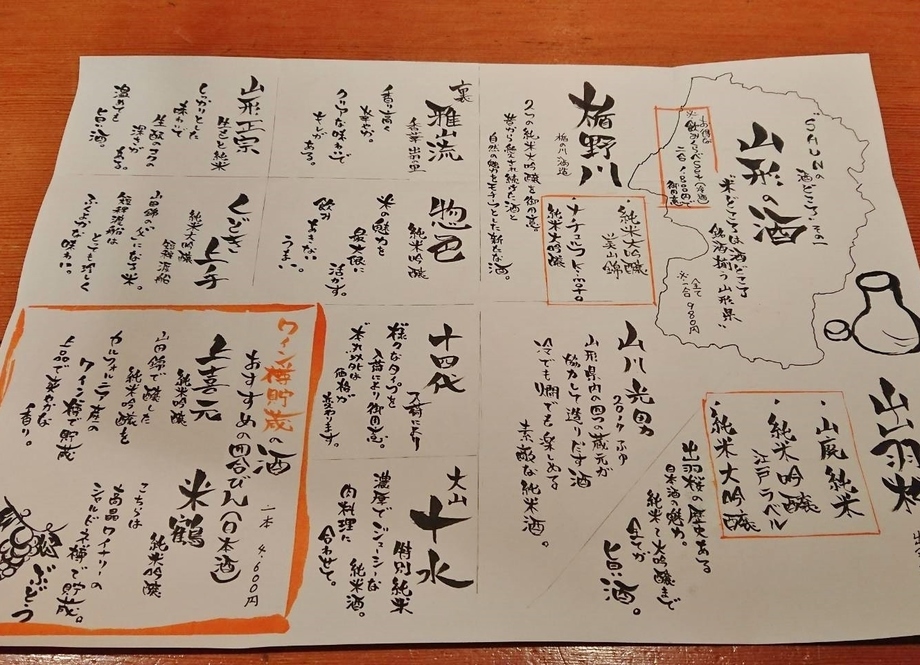 SAKUNの
酒どころ その一
山形の酒
"米どころは酒どころ
銘酒揃う山形県"
※全て
一合 980円
※お得な
飲みくらべSet(冷酒)
御用意
出羽桜
・山廃純米
・純米吟醸
江戸ラベル
・純米大吟醸
出羽桜の歴史ある
日本酒の魅力。
純米で大吟醸まで
全てが
旨い酒。
楯野川
楯の川酒造
・純米大吟醸
美山錦
・純米大吟醸
2つの純米大吟醸を御用意
昔から愛され続けた酒と
自然の魅力をモチーフとした新たな酒。
山川光男
2017 ふゆ
山形県内の四つの蔵元が
協力して造りだす酒
冷でも燗でも楽しめて。
素敵な純米酒。
裏
雅山流
香華
出羽の里
香り高く
華やか。
クリアな味わいで
キレがある。
惣邑
純米吟醸
米の魅力を
最大限に
活かす。
飲み
あきない
うまい。
十四代
入荷により
様々なタイプを
入荷により御用意。
本丸以外は
価格が
変わります。
大山
十水
特別純米
濃厚でジューシーな
純米酒。
肉料理に
合わせて。
山形正宗
生もと純米
しっかりとした
味わいで
生酛のコクと
深さが
ある。
温めても
旨い酒。
くどき上手
純米大吟醸
短稈渡船
山田錦の父になる米。
短稈渡船は
とっても珍しく
ふくよかな味わい。
ワイン樽貯蔵の酒
おすすめの四合びん(日本酒)
一本 4,600円
上喜元
純米吟醸
山田錦で醸した
純米吟醸を
カルフォルニア産の
ワイン樽で貯蔵
上品で華やかな
香り。
米鶴
純米吟醸
こちらは
高品ワイナリーの
シャルドネ樽で貯蔵。
ぶどう